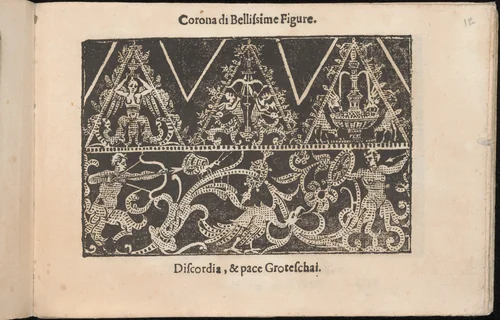 Corona di Belliſsime Figure.
12
Diſcordia, & pace Groteſchai.